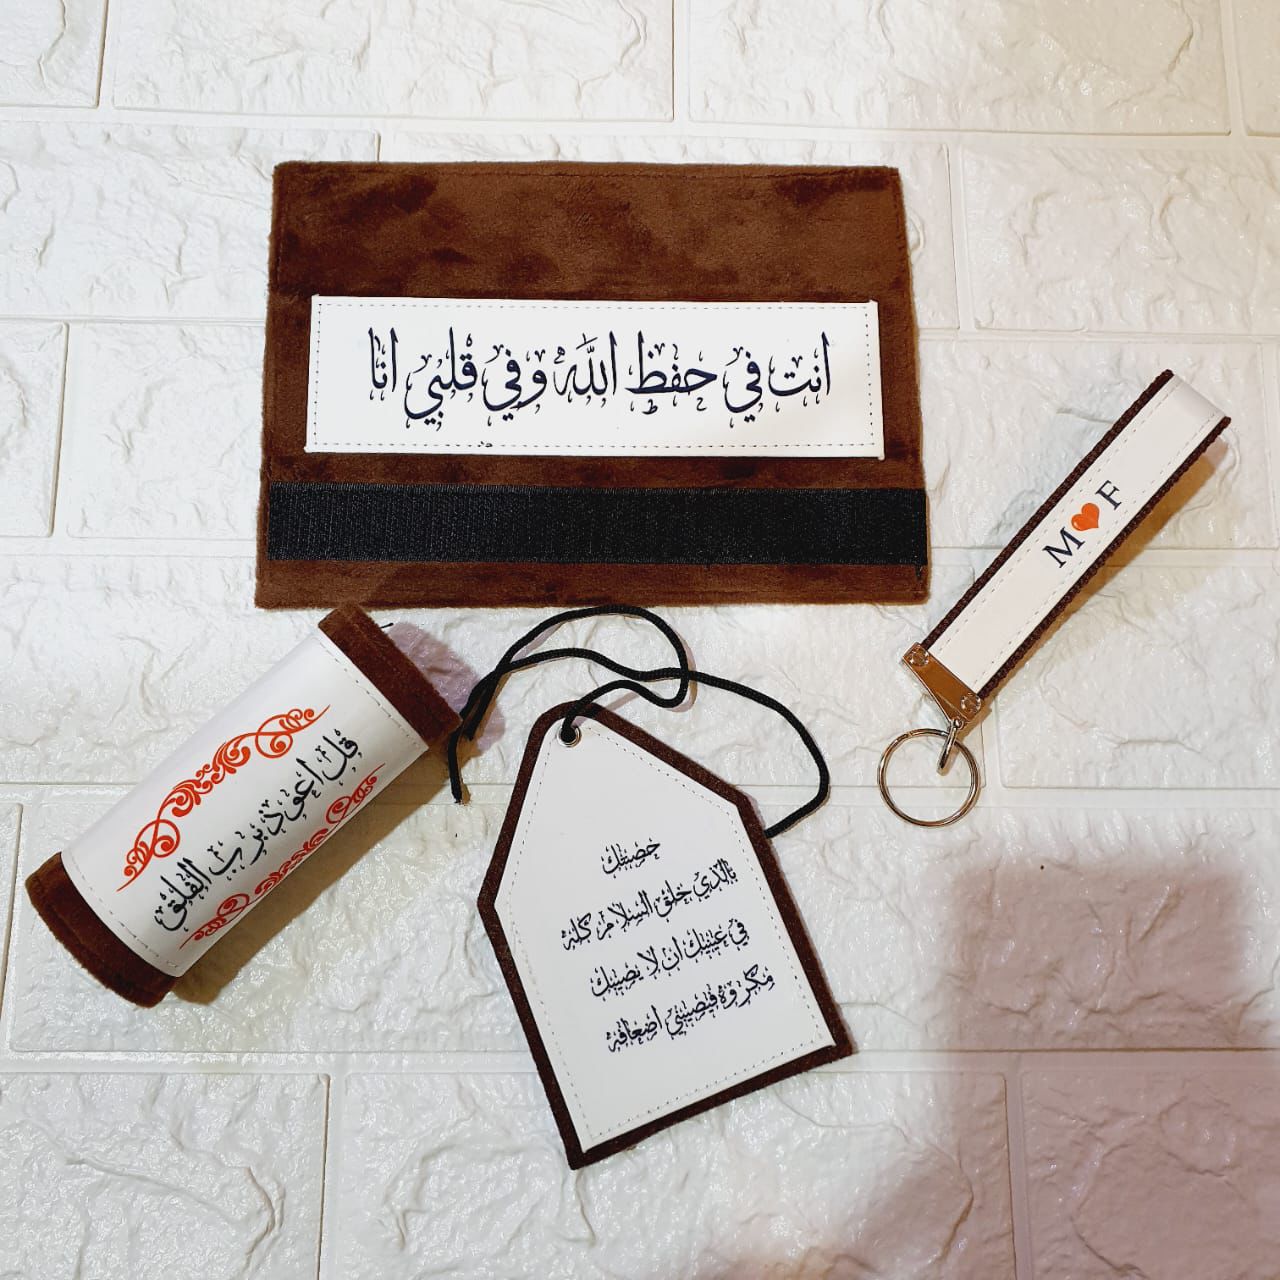 انت في حفظ اللّٰه وفي قلبي انا
M F
قل اعوذ برب الفلق
حصنتك
بالذي خلق السلام كله
في عينيك ان لا يصيبك
مكروه فيصيبني اضعافه